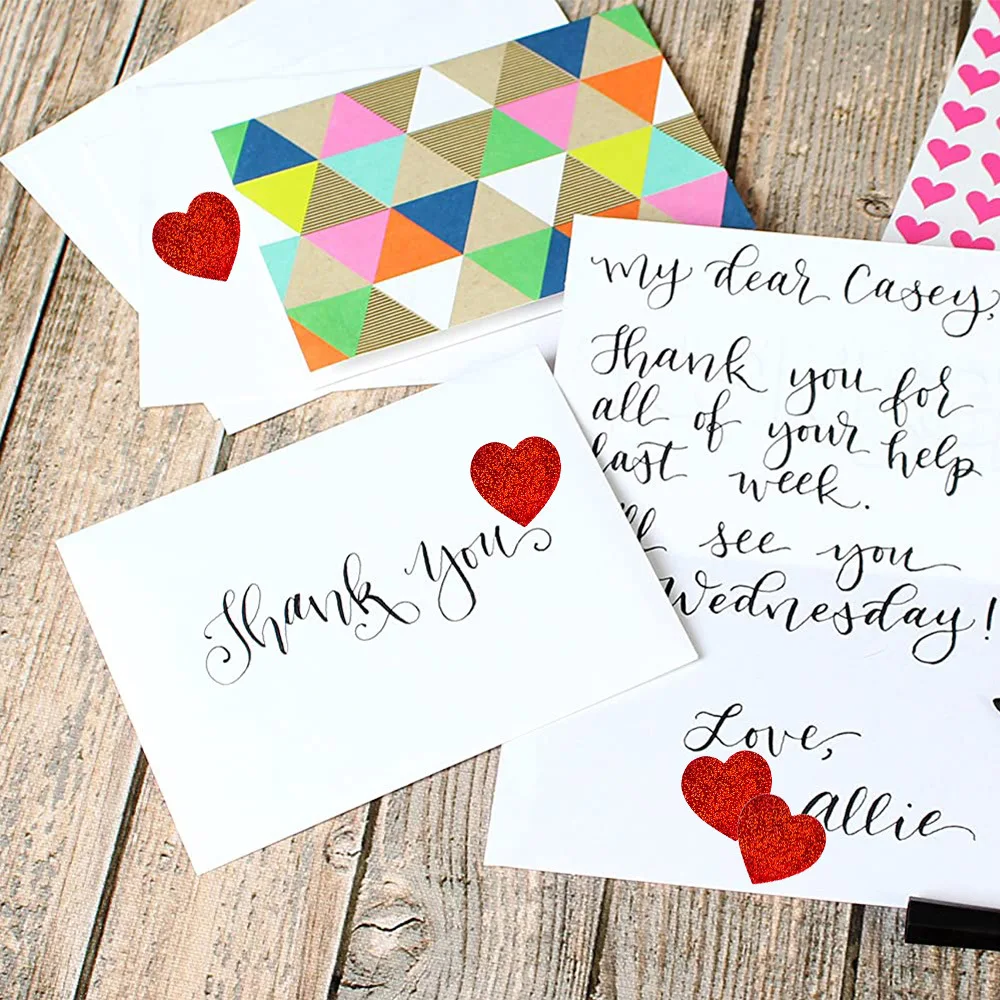 Thank you
My dear Casey,
Thank you for
all of your help
last week.
see you
Wednesday!
Love,
Allie